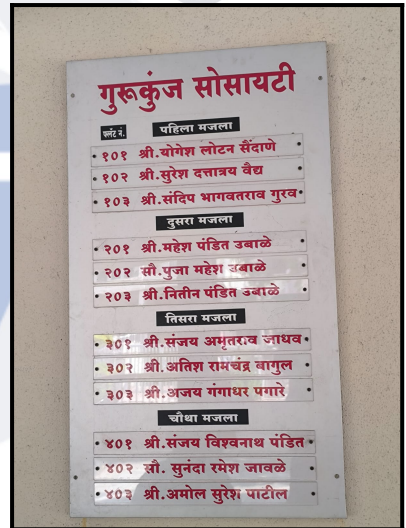 गुरूकुंज सोसायटी
फ्लॅट नं. पहिला मजला
१०१ श्री.योगेश लोटन सैंदाणे
१०२ श्री.सुरेश दत्तात्रय वैद्य
१०३ श्री.संदिप भागवतराव गुरव
दुसरा मजला
२०१ श्री.महेश पंडित उबाळे
२०२ सौ.पुजा महेश उबाळे
२०३ श्री.नितीन पंडित उबाळे
तिसरा मजला
३०१ श्री.संजय अमृतराव जाधव
३०२ श्री.अतिश रामचंद्र बागुल
३०३ श्री.अजय गंगाधर पगारे
चौथा मजला
४०१ श्री.संजय विश्वनाथ पंडित
४०२ सौ. सुनंदा रमेश जावळे
४०३ श्री.अमोल सुरेश पाटील